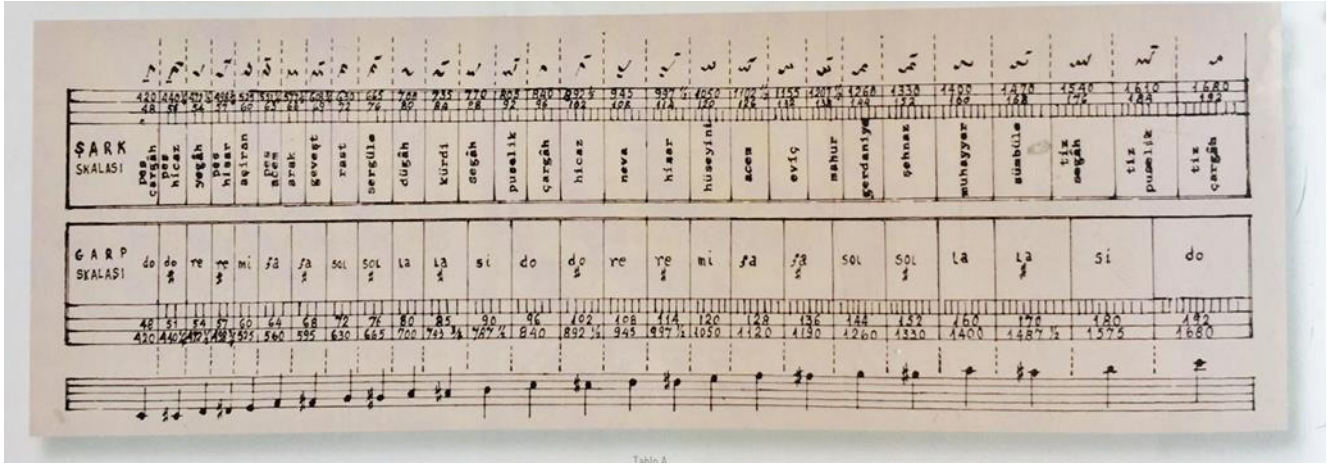 420 440 ½ 472 ½ 498 ¾ 525 551 ¼ 577 ½ 603 ¾ 630 665 700 735 770 805 840 892 ½ 945 997 ½ 1050 1102 ½ 1155 1207 ½ 1260 1330 1400 1470 1540 1610 1680
48 51 54 57 60 63 66 69 72 76 80 84 88 92 96 102 108 114 120 126 132 138 144 152 160 168 176 184 192
ŞARK SKALASI
pes çargâh pes hicaz yegâh pes hisar aşiran pes acem arak geveşt rast sergüle dügâh kürdi segâh puselik çargâh hicaz neva hisar hüseyini acem eviç mahur gerdaniye şehnaz muhayyer sümbüle tiz segâh tiz puselik tiz çargâh
GARP SKALASI
do do # re re # mi fa fa # SOL SOL # LA LA # si do do # re re # mi fa fa # SOL SOL # LA LA # si do
48 51 54 57 60 64 68 72 76 80 85 90 96 102 108 114 120 128 136 144 152 160 170 180 192
420 525 560 595 630 665 700 743 ¾ 787 ½ 840 892 ½ 945 997 ½ 1050 1120 1190 1260 1330 1400 1487 ½ 1575 1680
Tablo A